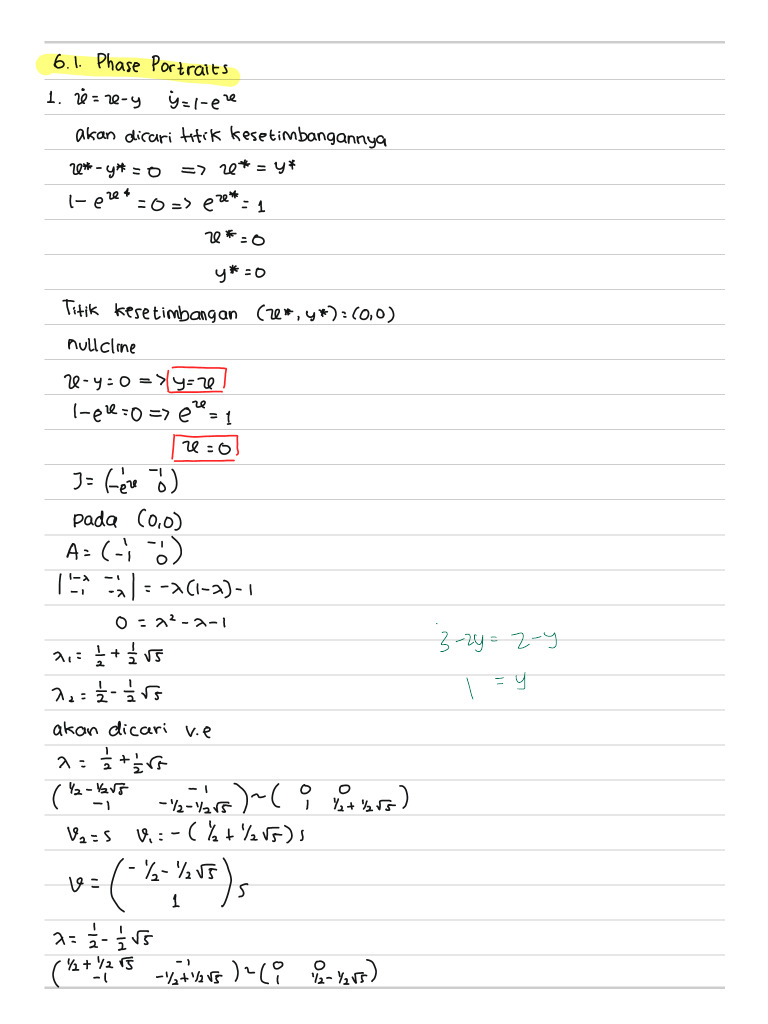 6.1. Phase Portraits
1. ẋ = x - y ẏ = 1 - e^x
akan dicari titik kesetimbangannya
x* - y* = 0 => x* = y*
1 - e^x* = 0 => e^x* = 1
x* = 0
y* = 0
Titik kesetimbangan (x*, y*) = (0,0)
nullcline
x - y = 0 => y = x
1 - e^x = 0 => e^x = 1
x = 0
J = (1 -1; -e^x 0)
pada (0,0)
A = (1 -1; -1 0)
|1-λ -1; -1 -λ| = -λ(1-λ) - 1
0 = λ² - λ - 1
3 - 2y = 2 - y
λ₁ = 1/2 + 1/2 √5
1 = y
λ₂ = 1/2 - 1/2 √5
akan dicari v.e
λ = 1/2 + 1/2 √5
(1/2 - 1/2√5 -1; -1 -1/2 - 1/2√5) ~ (0 0; 1 1/2 + 1/2√5)
v₂ = s v₁ = -(1/2 + 1/2 √5) s
v = (-1/2 - 1/2 √5; 1) s
λ = 1/2 - 1/2 √5
(1/2 + 1/2 √5 -1; -1 -1/2 + 1/2 √5) ~ (0 0; 1 1/2 - 1/2√5)